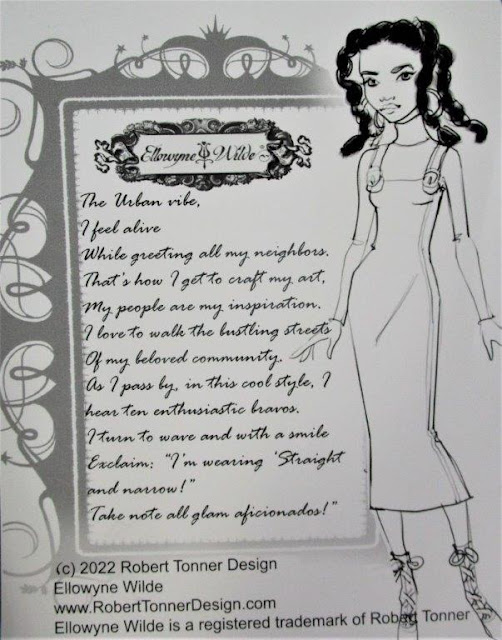 Ellowyne Wilde
The Urban vibe,
I feel alive
While greeting all my neighbors.
That's how I get to craft my art,
My people are my inspiration.
I love to walk the bustling streets
Of my beloved community.
As I pass by, in this cool style, I
hear ten enthusiastic bravos.
I turn to wave and with a smile
Exclaim: "I'm wearing 'Straight
and narrow!"
Take note all glam aficionados!"
(c) 2022 Robert Tonner Design
Ellowyne Wilde
www.RobertTonnerDesign.com
Ellowyne Wilde is a registered trademark of Robert Tonner